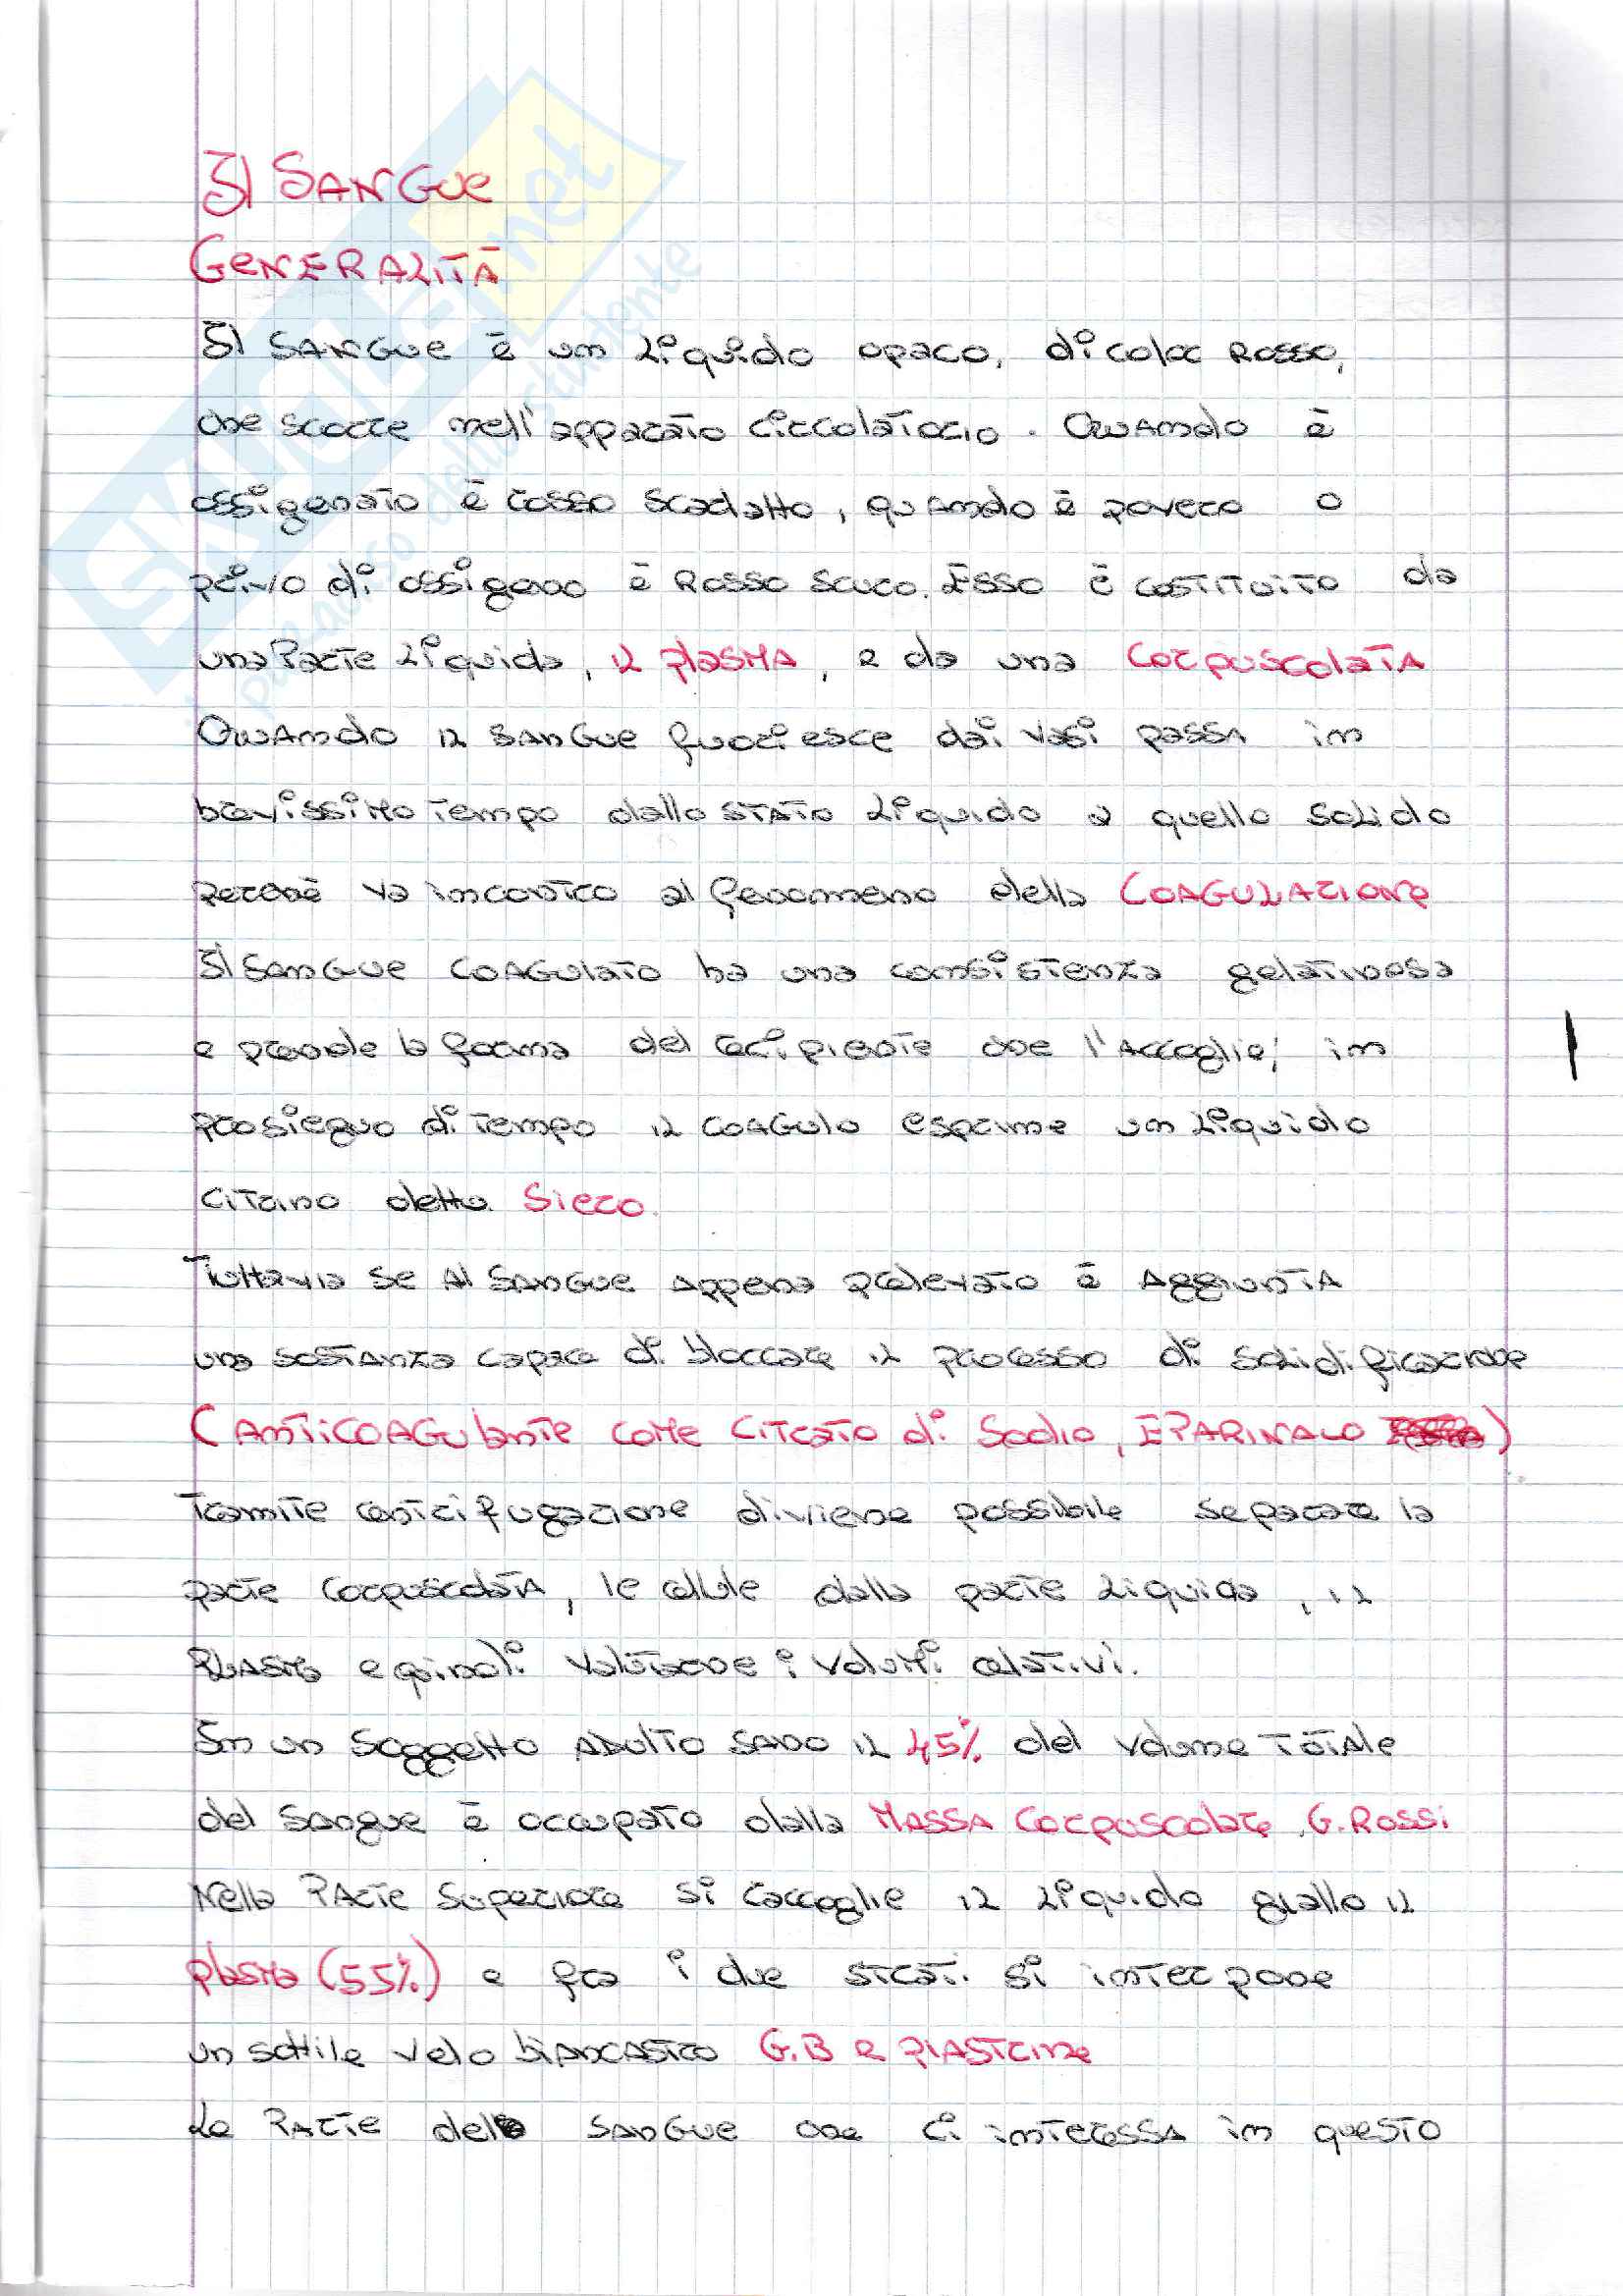 Il SANGUE
GENERALITÀ
Il SANGUE è un liquido opaco, di color rosso,
che scorre nell'apparato circolatorio. Quando è
ossigenato è rosso scarlatto, quando è povero o
privo di ossigeno è rosso scuro. Esso è costituito da
una parte liquida, il plasma, e da una corpuscolata
Quando il sangue fuoriesce dai vasi passa in
brevissimo tempo dallo stato liquido a quello solido
perché va incontro al fenomeno della COAGULAZIONE
Il sangue coagulato ha una consistenza gelatinosa
e prende la forma del recipiente che l'accoglie; in
prosieguo di tempo il coagulo esprime un liquido
citrino detto Siero.
Tuttavia se al sangue appena prelevato è aggiunta
una sostanza capace di bloccare il processo di solidificazione
(Anticoagulante come citrato di Sodio, EPARINA Lo)
tramite centrifugazione diviene possibile separare la
parte corpuscolata, le cellule dalla parte liquida, il
plasma e quindi valutarne i volumi relativi.
In un soggetto adulto sano il 45% del volume totale
del sangue è occupato dalla MASSA corpuscolare, G. Rossi
Nella parte superiore si raccoglie il liquido giallo il
plasma (55%) e fra i due strati si interpone
un sottile velo biancastro G.B e piastrine
La parte del sangue che ci interessa in questo
SKUOLA.net
paradiso dello studente